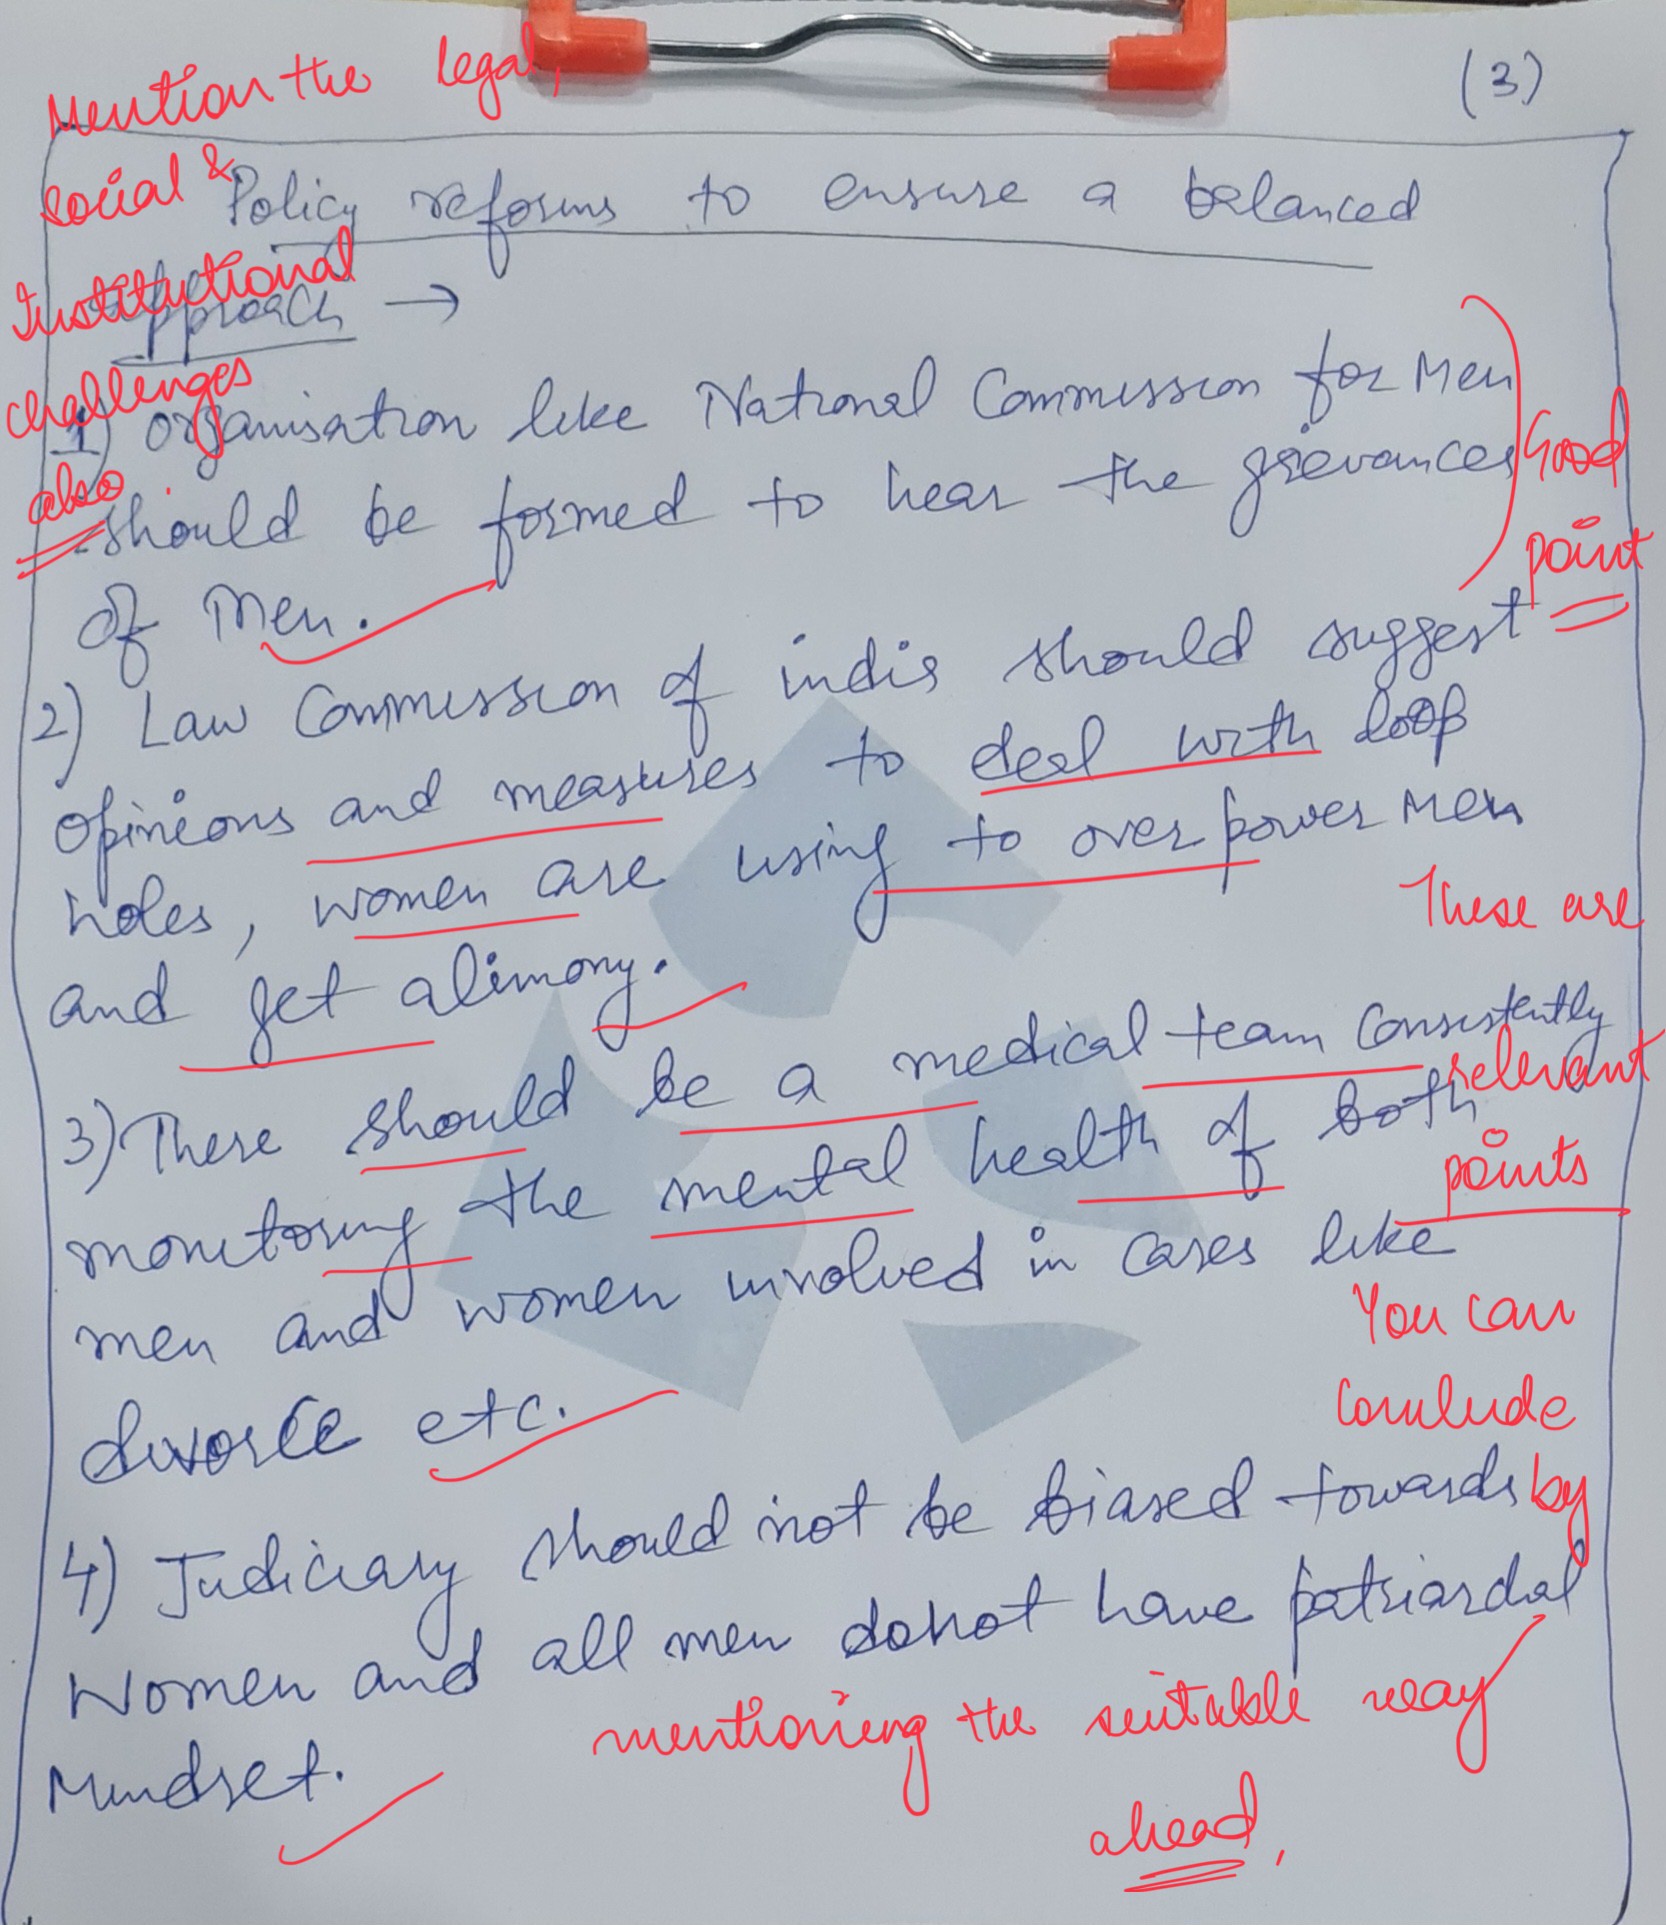 (3)
Mention the legal,
social &
Institutional
challenges
also
Policy reforms to ensure a balanced
Approach →
1) Organisation like National Commission for Men
should be formed to hear the grievances
of Men.
Good
point
2) Law Commission of india should suggest
opinions and measures to deal with loop
holes, women are using to over power Men
and get alimony.
These are
relevant
points
3) There should be a medical team consistently
monitoring the mental health of both
men and women involved in cases like
divorce etc.
You can
conclude
by
mentioning the suitable way
ahead,
4) Judiciary should not be biased towards
Women and all men donot have patriardal
Mindset.